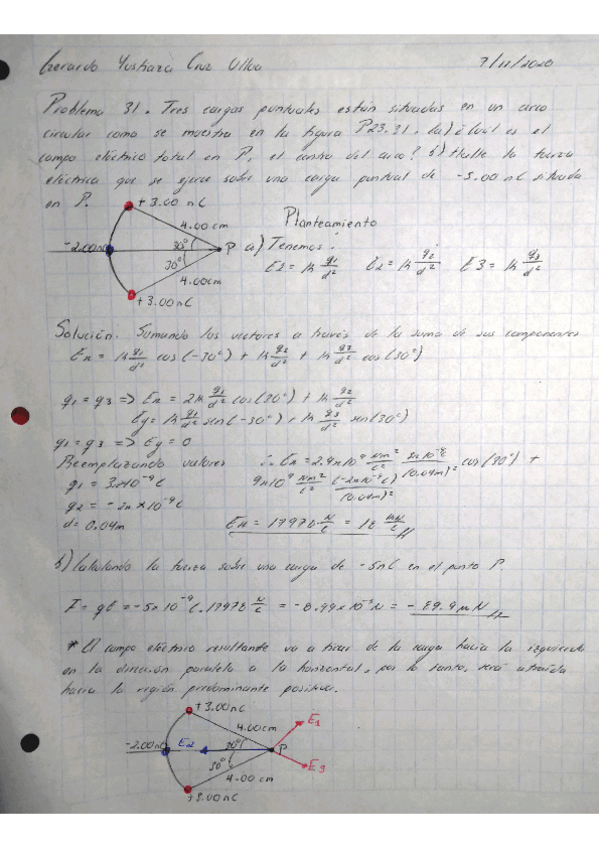 Gerardo Yushaza Cruz Ulloa 7/11/2020
Problema 31. Tres cargas puntuales están situadas en un arco
circular como se muestra en la figura P23.31. (a) ¿Cuál es el
campo eléctrico total en P, el centro del arco? b) Halle la fuerza
eléctrica que se ejerce sobre una carga puntual de -5.00 nC situada
en P.
+3.00 nC
4.00 cm
-2.00 nC
30°
30°
P
4.00 cm
+3.00 nC
Planteamiento
a) Tenemos:
E1 = k q1/d² E2 = k q2/d² E3 = k q3/d²
Solución. Sumando los vectores a través de la suma de sus componentes
Ex = k q1/d² cos(-30°) + k q2/d² + k q3/d² cos(30°)
q1 = q3 => Ex = 2k q1/d² cos(30°) + k q2/d²
Ey = k q1/d² sen(-30°) + k q3/d² sen(30°)
q1 = q3 => Ey = 0
Reemplazando valores
q1 = 3x10⁻⁹C
q2 = -2x10⁻⁹C
d = 0.04m
∴ Ex = 2.9x10⁹ Nm²/C² 3x10⁻⁹C/(0.04m)² cos(30°) +
9x10⁹ Nm²/C² (-2x10⁻⁹C)/(0.04m)²
Ex = 17978 N/C = 18 kN/C
b) Calculando la fuerza sobre una carga de -5nC en el punto P.
F = qE = -5x10⁻⁹C.17978 N/C = -8.99x10⁻⁵N = -89.9 μN
* El campo eléctrico resultante va a tirar de la carga hacia la izquierda
en la dirección paralela a la horizontal, por lo tanto, será atraída
hacia la región predominante positiva.
+3.00 nC
4.00 cm
E1
-2.00 nC
E2
30°
P
30°
E3
4.00 cm
+3.00 nC